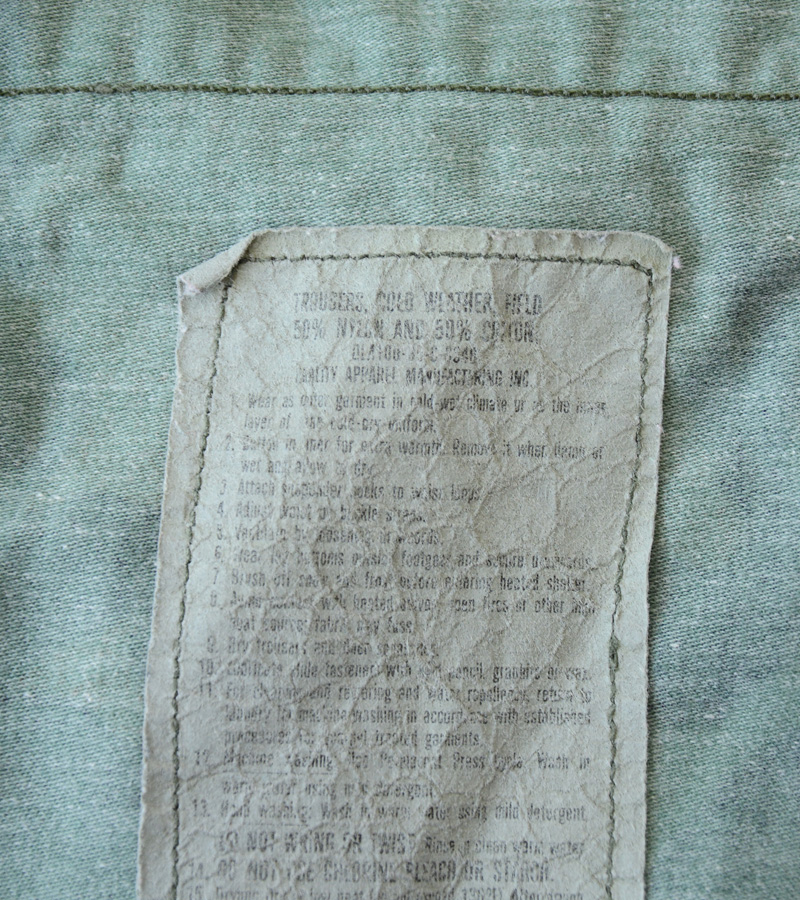 TROUSERS, COLD WEATHER, FIELD
50% NYLON AND 50% COTTON
APPAREL MANUFACTURING INC.
1. Wear as outer garment in cold-wet climate or as the
layer of the cold-dry uniform.
2. Button in liner for extra warmth. Remove it when damp or
wet and allow to dry.
3. Attach suspender hooks to waist loops.
4. Adjust waist buckle straps.
5. Ventilate by loosening
6. Wear bottoms outside footgear and secure
7. Brush off snow and frost before entering heated shelter.
8. Avoid contact with heated stove, open fires or other high
heat source; fabric may fuse.
9. Dry trousers
10. Lubricate slide fasteners with pencil, graphite or wax.
11. For cleaning and repairing and water repellency, return to
laundry for machine washing in accordance with established
procedures for garments.
12. Machine washing: Use Permanent Press cycle. Wash in
warm water using mild detergent.
13. Hand washing: Wash in warm water using mild detergent.
DO NOT WRING OR TWIST. Rinse in clean warm water.
14. DO NOT USE CHLORINE BLEACH OR STARCH.
15.